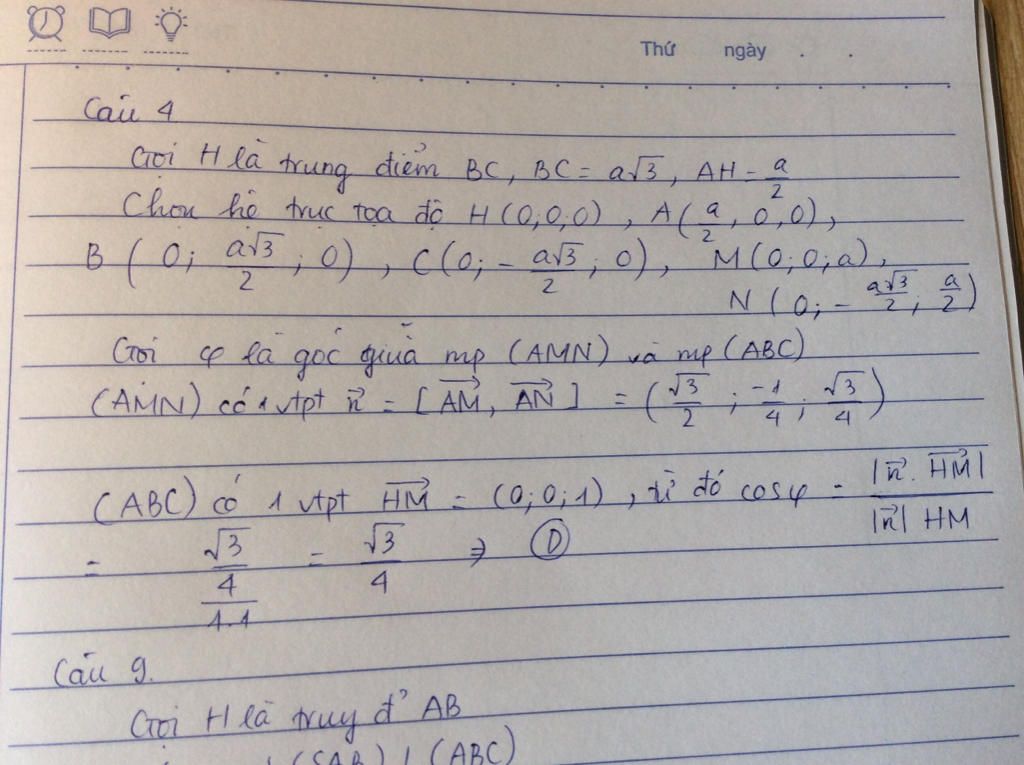 Thứ ngày . .
Câu 4
Gọi H là trung điểm BC, BC = a√3, AH = a/2
Chọn hệ trục tọa độ H(0;0;0), A(a/2, 0, 0),
B(0; a√3/2; 0), C(0; -a√3/2; 0), M(0;0;a),
N(0; -a√3/2; a/2)
Gọi φ là góc giữa mp (AMN) và mp (ABC)
(AMN) có 1 vtpt n⃗ = [AM⃗, AN⃗] = (√3/2; -1/4; √3/4)
(ABC) có 1 vtpt HM⃗ = (0;0;1), từ đó cosφ = |n⃗.HM⃗| / |n⃗| HM
= (√3/4)/(1.1) = √3/4 ⇒ D
Câu 9.
Gọi H là trung đ' AB
(SAB) ⊥ (ABC)